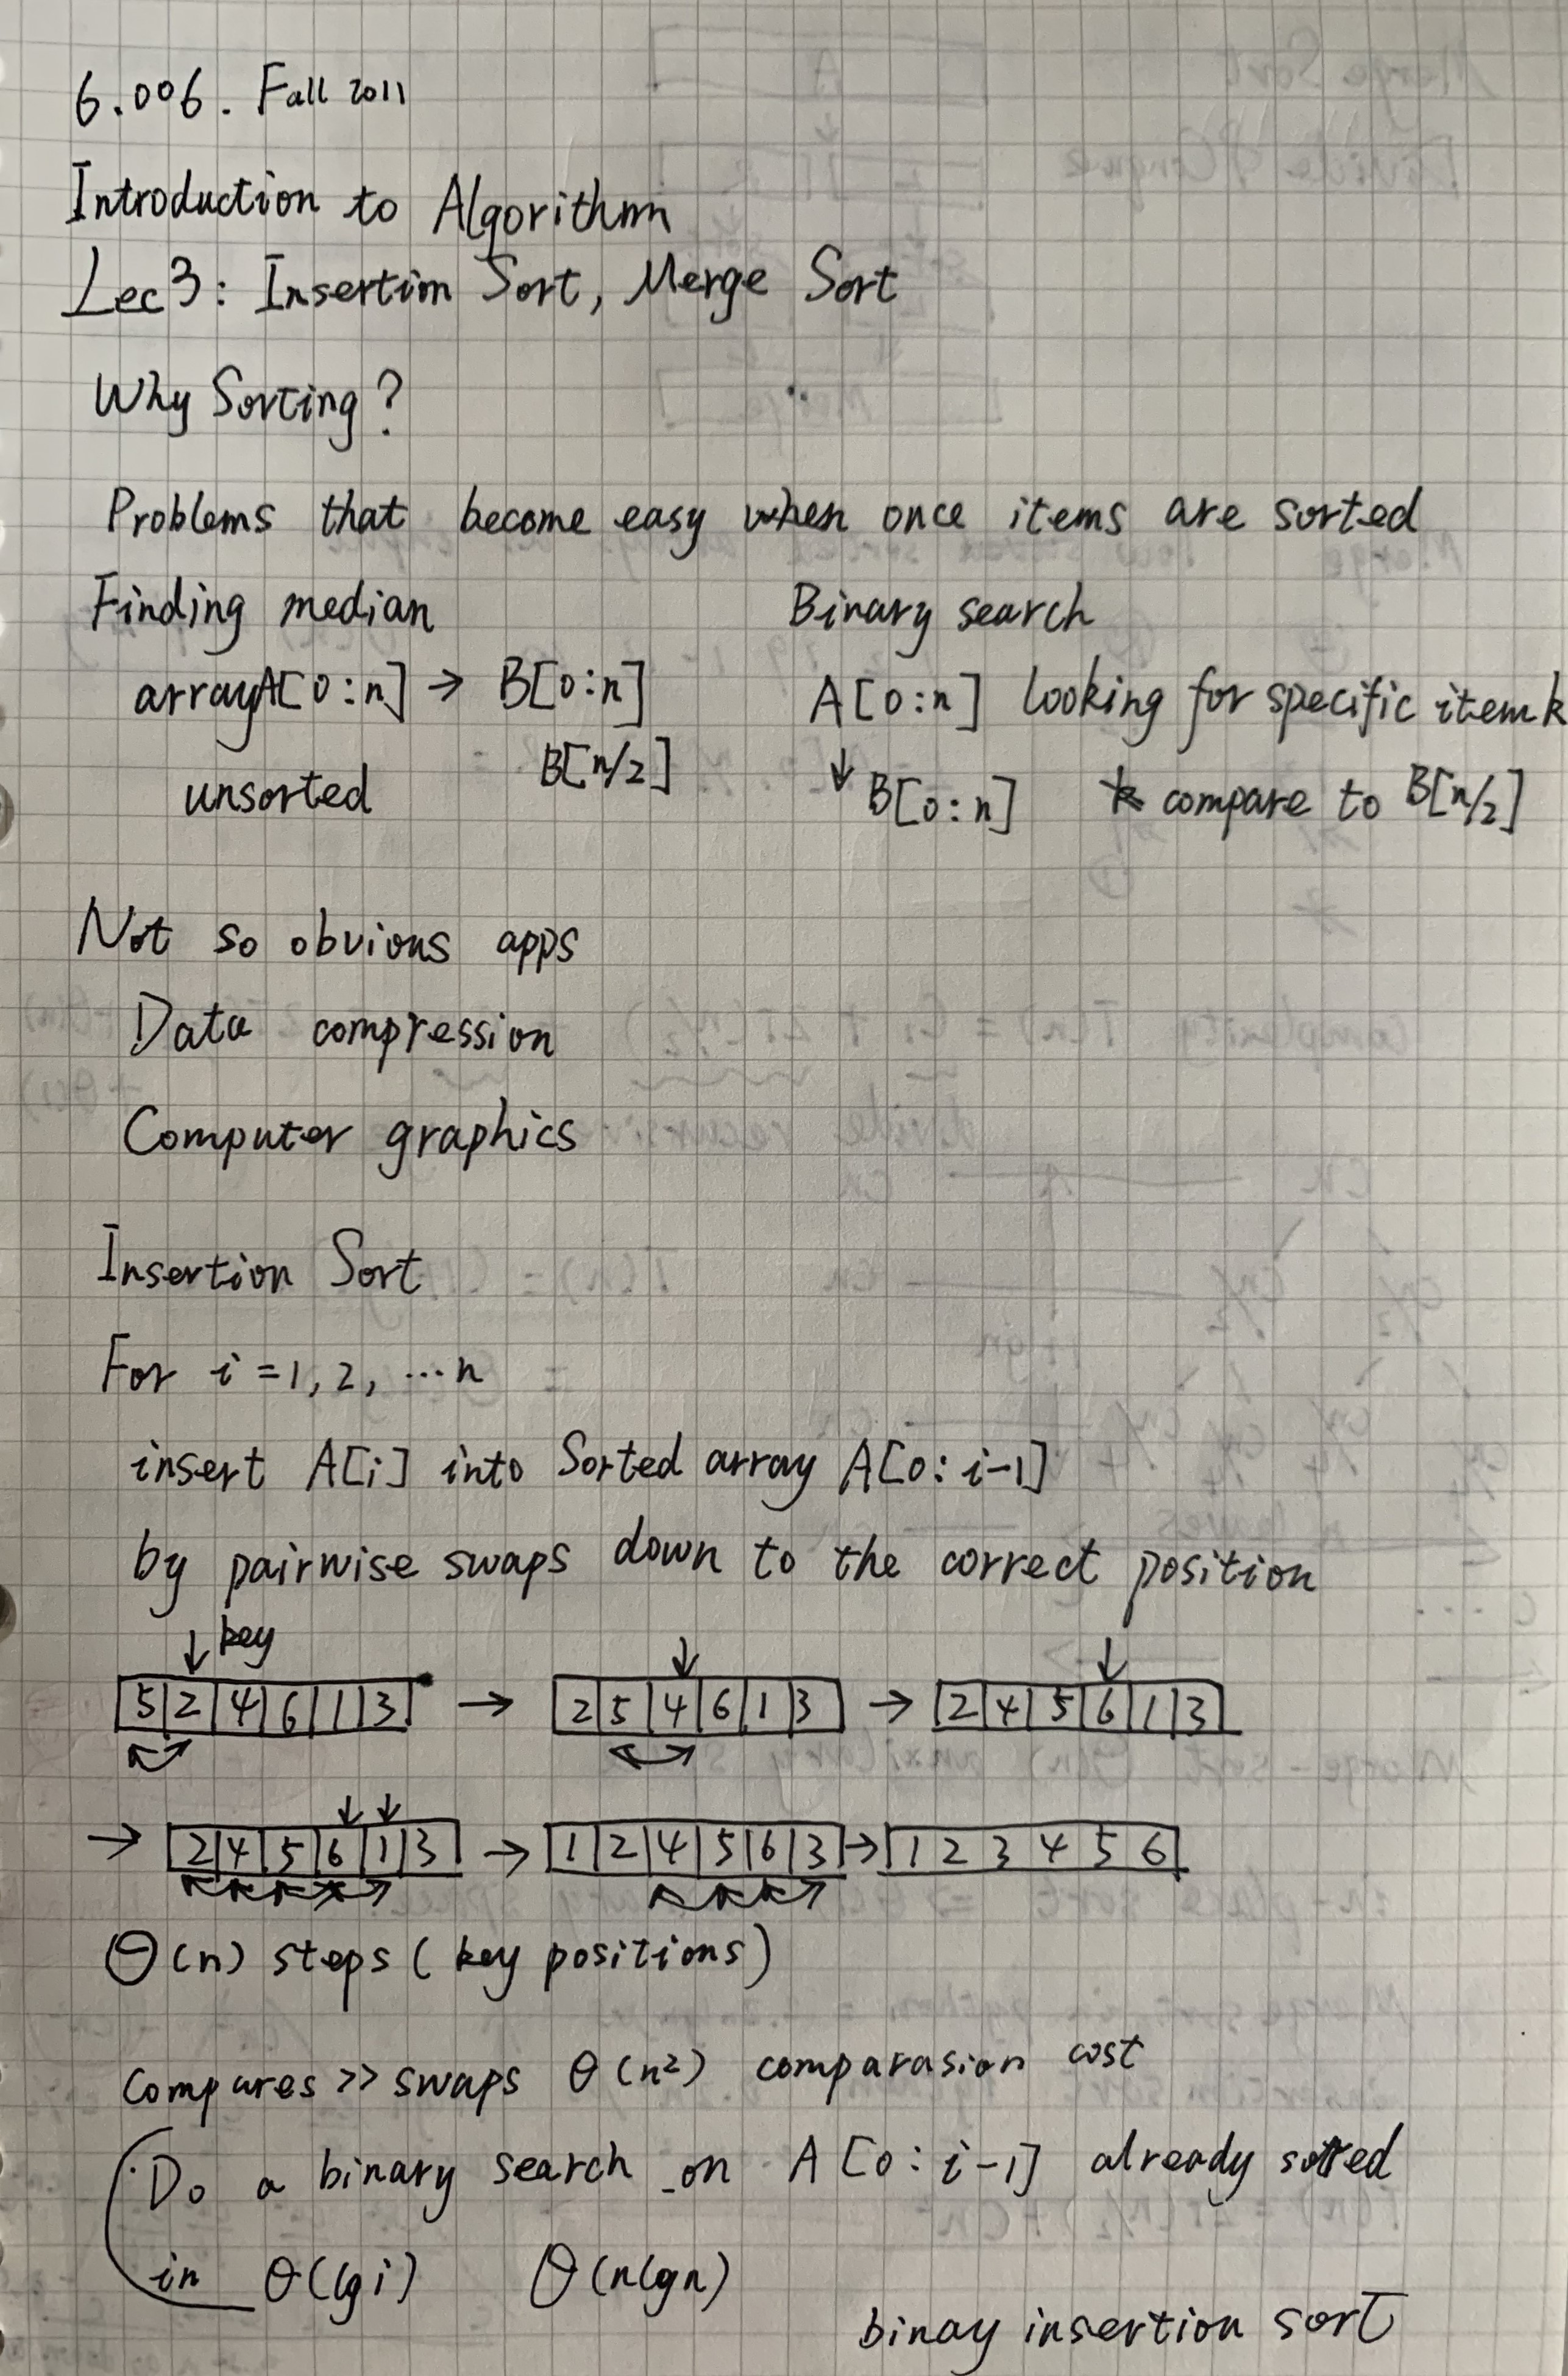 6.006. Fall 2011
Introduction to Algorithm
Lec3: Insertion Sort, Merge Sort
Why Sorting?
Problems that become easy when once items are sorted
Finding median
array A[0:n] → B[0:n]
unsorted B[n/2]
Binary search
A[0:n] looking for specific item k
↓ B[0:n] k compare to B[n/2]
Not so obvious apps
Data compression
Computer graphics
Insertion Sort
For i = 1, 2, ... n
insert A[i] into Sorted array A[0:i-1]
by pairwise swaps down to the correct position
↓ key
5 2 4 6 1 3 → 2 5 4 6 1 3 → 2 4 5 6 1 3
→ 2 4 5 6 1 3 → 1 2 4 5 6 3 → 1 2 3 4 5 6
Θ(n) steps (key positions)
Compares >> swaps Θ(n²) comparasion cost
Do a binary search on A[0:i-1] already sorted
in Θ(lg i) Θ(n lg n)
binay insertion sort